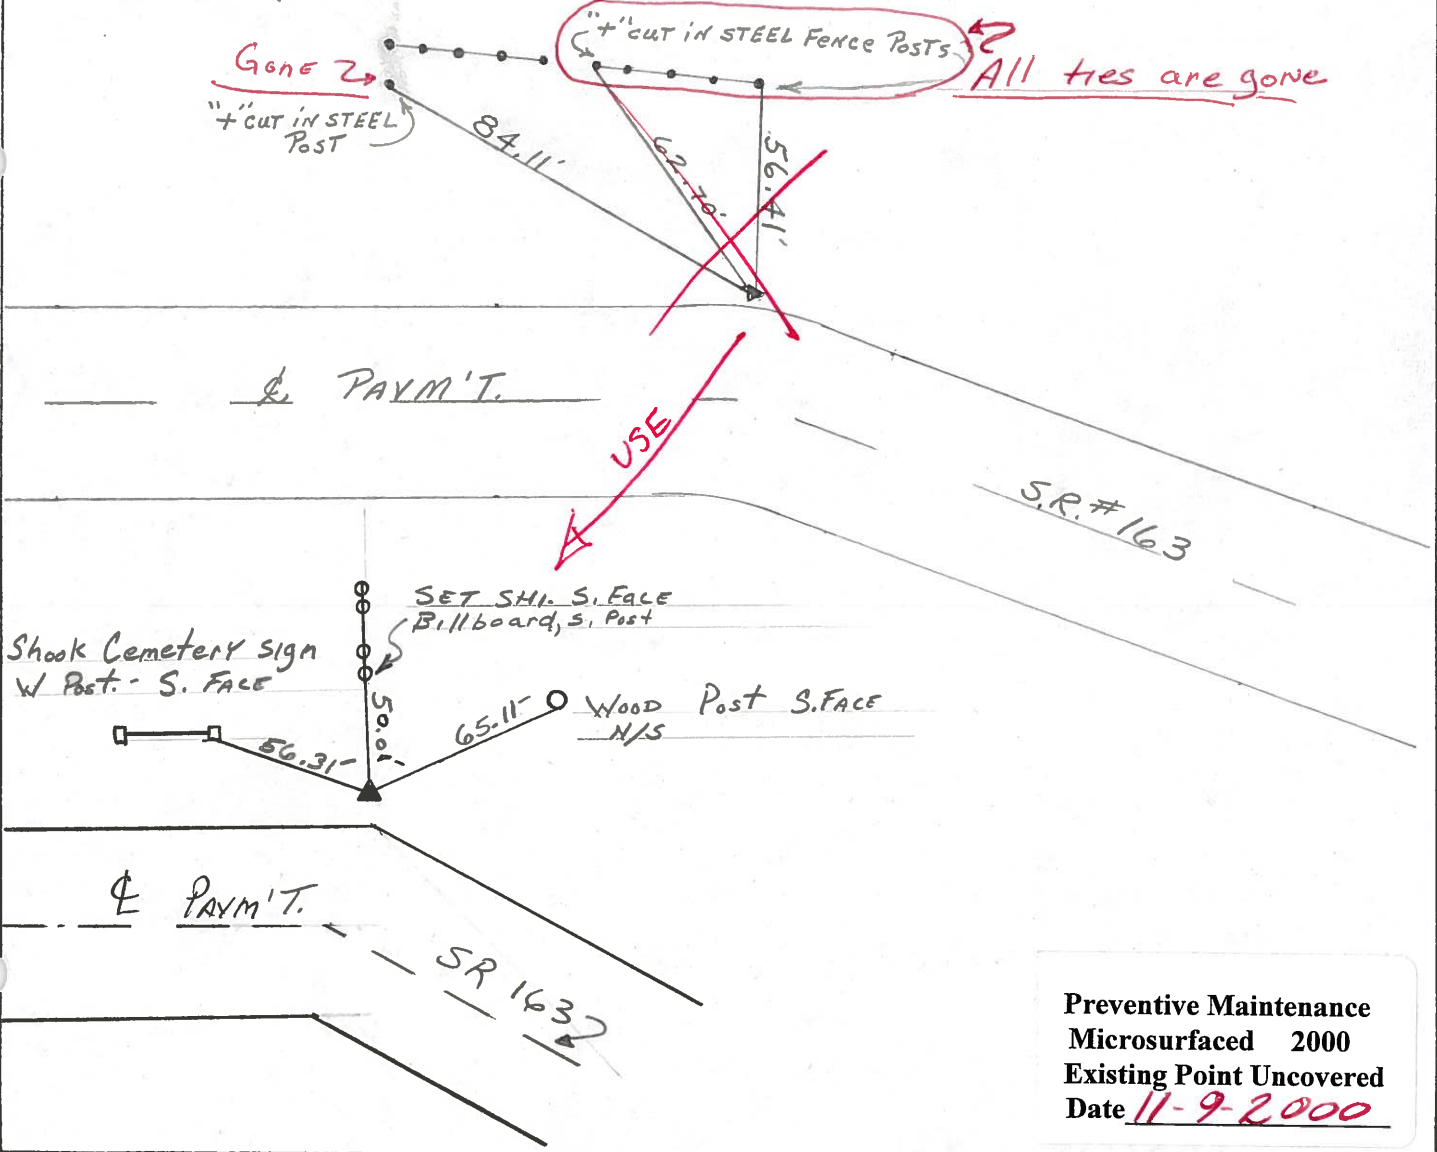 "+" CUT IN STEEL FENCE POSTS
Gone
All ties are gone
"+" CUT IN STEEL
POST
84.11'
62.70'
56.41'
℄ PAVM'T.
USE
S.R. # 163
SET SHI. S. FACE
Billboard, S. Post
Shook Cemetery Sign
W Post. - S. FACE
50.01'
56.31'
65.11'
WOOD Post S. FACE
N/S
℄ PAVM'T.
SR 163
Preventive Maintenance
Microsurfaced 2000
Existing Point Uncovered
Date 11-9-2000